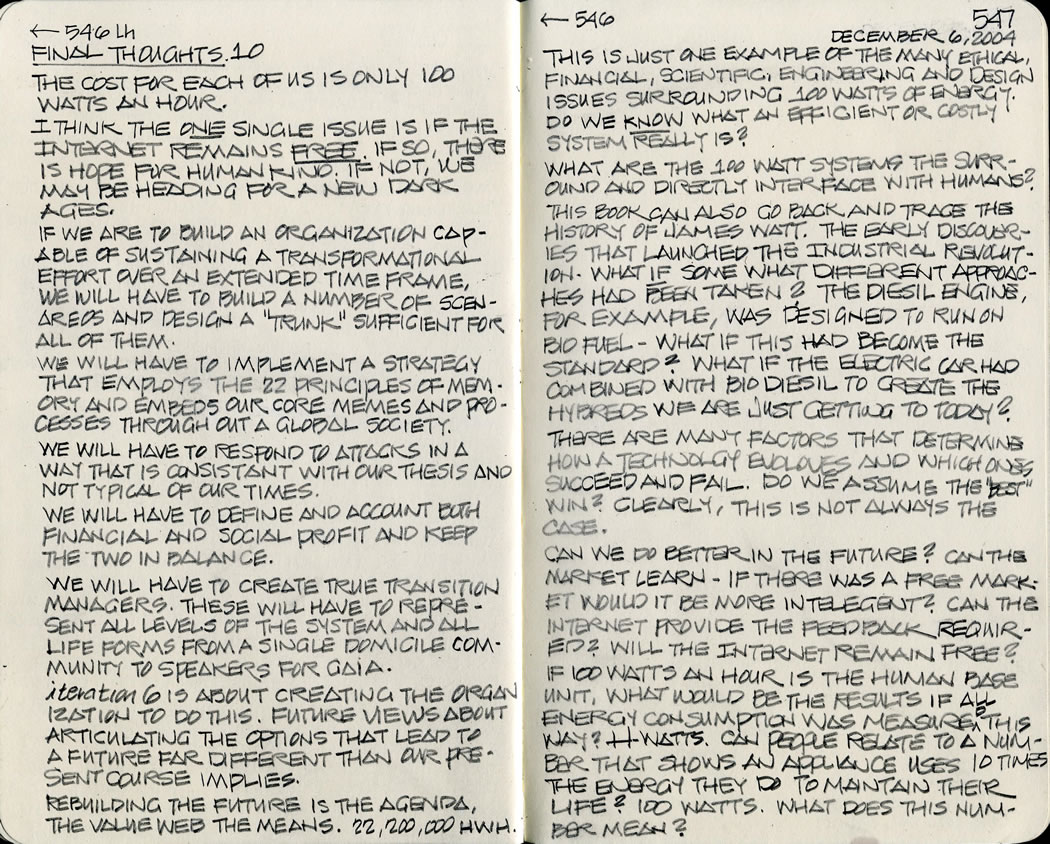 ← 546 Lh
FINAL THOUGHTS. 10
THE COST FOR EACH OF US IS ONLY 100
WATTS AN HOUR.
I THINK THE ONE SINGLE ISSUE IS IF THE
INTERNET REMAINS FREE. IF SO, THERE
IS HOPE FOR HUMAN KIND. IF NOT, WE
MAY BE HEADING FOR A NEW DARK
AGES.
IF WE ARE TO BUILD AN ORGANIZATION CAP-
ABLE OF SUSTAINING A TRANSFORMATIONAL
EFFORT OVER AN EXTENDED TIME FRAME,
WE WILL HAVE TO BUILD A NUMBER OF SCEN-
AREOS AND DESIGN A "TRUNK" SUFFICIENT FOR
ALL OF THEM.
WE WILL HAVE TO IMPLEMENT A STRATEGY
THAT EMPLOYS THE 22 PRINCIPLES OF MEM-
ORY AND EMBEDS OUR CORE MEMES AND PRO-
CESSES THROUGH OUT A GLOBAL SOCIETY.
WE WILL HAVE TO RESPOND TO ATTACKS IN A
WAY THAT IS CONSISTANT WITH OUR THESIS AND
NOT TYPICAL OF OUR TIMES.
WE WILL HAVE TO DEFINE AND ACCOUNT BOTH
FINANCIAL AND SOCIAL PROFIT AND KEEP
THE TWO IN BALANCE.
WE WILL HAVE TO CREATE TRUE TRANSITION
MANAGERS. THESE WILL HAVE TO REPRE-
SENT ALL LEVELS OF THE SYSTEM AND ALL
LIFE FORMS FROM A SINGLE DOMICILE COM-
MUNITY TO SPEAKERS FOR GAIA.
iteration 6 IS ABOUT CREATING THE ORGAN
IZATION TO DO THIS. FUTURE VIEWS ABOUT
ARTICULATING THE OPTIONS THAT LEAD TO
A FUTURE FAR DIFFERENT THAN OUR PRE-
SENT COURSE IMPLIES.
REBUILDING THE FUTURE IS THE AGENDA,
THE VALUE WEB THE MEANS. 22,200,000 HWH.
← 546
547
DECEMBER 6, 2004
THIS IS JUST ONE EXAMPLE OF THE MANY ETHICAL,
FINANCIAL, SCIENTIFIC, ENGINEERING AND DESIGN
ISSUES SURROUNDING 100 WATTS OF ENERGY.
DO WE KNOW WHAT AN EFFICIENT OR COSTLY
SYSTEM REALLY IS?
WHAT ARE THE 100 WATT SYSTEMS THE SURR-
OUND AND DIRECTLY INTERFACE WITH HUMANS?
THIS BOOK CAN ALSO GO BACK AND TRACE THE
HISTORY OF JAMES WATT. THE EARLY DISCOVER-
IES THAT LAUNCHED THE INDUSTRIAL REVOLUT-
ION. WHAT IF SOME WHAT DIFFERENT APPROAC-
HES HAD BEEN TAKEN? THE DIESIL ENGINE,
FOR EXAMPLE, WAS DESIGNED TO RUN ON
BIO FUEL - WHAT IF THIS HAD BECOME THE
STANDARD? WHAT IF THE ELECTRIC CAR HAD
COMBINED WITH BIO DIESIL TO CREATE THE
HYBREDS WE ARE JUST GETTING TO TODAY?
THERE ARE MANY FACTORS THAT DETERMINE
HOW A TECHNOLGY EVOLOVES AND WHICH ONES
SUCCEED AND FAIL. DO WE ASSUME THE "BEST"
WIN? CLEARLY, THIS IS NOT ALWAYS THE
CASE.
CAN WE DO BETTER IN THE FUTURE? CAN THE
MARKET LEARN - IF THERE WAS A FREE MARK-
ET WOULD IT BE MORE INTELEGENT? CAN THE
INTERNET PROVIDE THE FEEDBACK REQUIR-
ED? WILL THE INTERNET REMAIN FREE?
IF 100 WATTS AN HOUR IS THE HUMAN BASE
UNIT, WHAT WOULD BE THE RESULTS IF ALL
ENERGY CONSUMPTION WAS MEASURED THIS
WAY? H-WATTS. CAN PEOPLE RELATE TO A NUM-
BER THAT SHOWS AN APPLIANCE USES 10 TIMES
THE ENERGY THEY DO TO MANTAIN THEIR
LIFE? 100 WATTS. WHAT DOES THIS NUM-
BER MEAN?